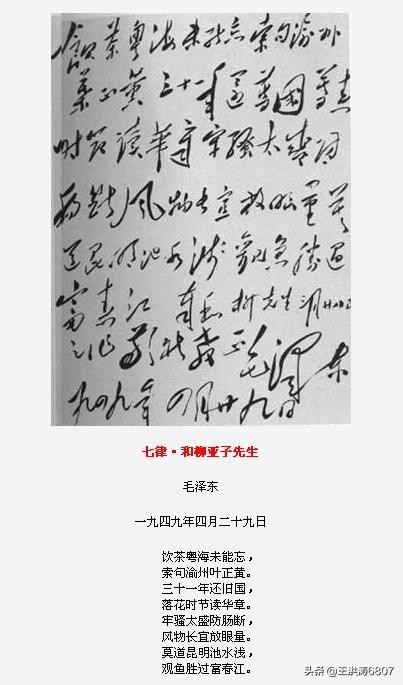 飲茶粤海未能忘索句渝州
葉正黄三十一年還舊國落花
时節读華章牢騷太盛防
腸斷風物长宜放眼量莫
道昆明池水浅觀魚勝過
富春江 奉和柳先生三月廿八日
之作敬祈教正 毛泽东
一九四九年四月廿九日
七律·和柳亚子先生
毛泽东
一九四九年四月二十九日
饮茶粤海未能忘，
索句渝州叶正黄。
三十一年还旧国，
落花时节读华章。
牢骚太盛防肠断，
风物长宜放眼量。
莫道昆明池水浅，
观鱼胜过富春江。
头条 @王洪涛6807